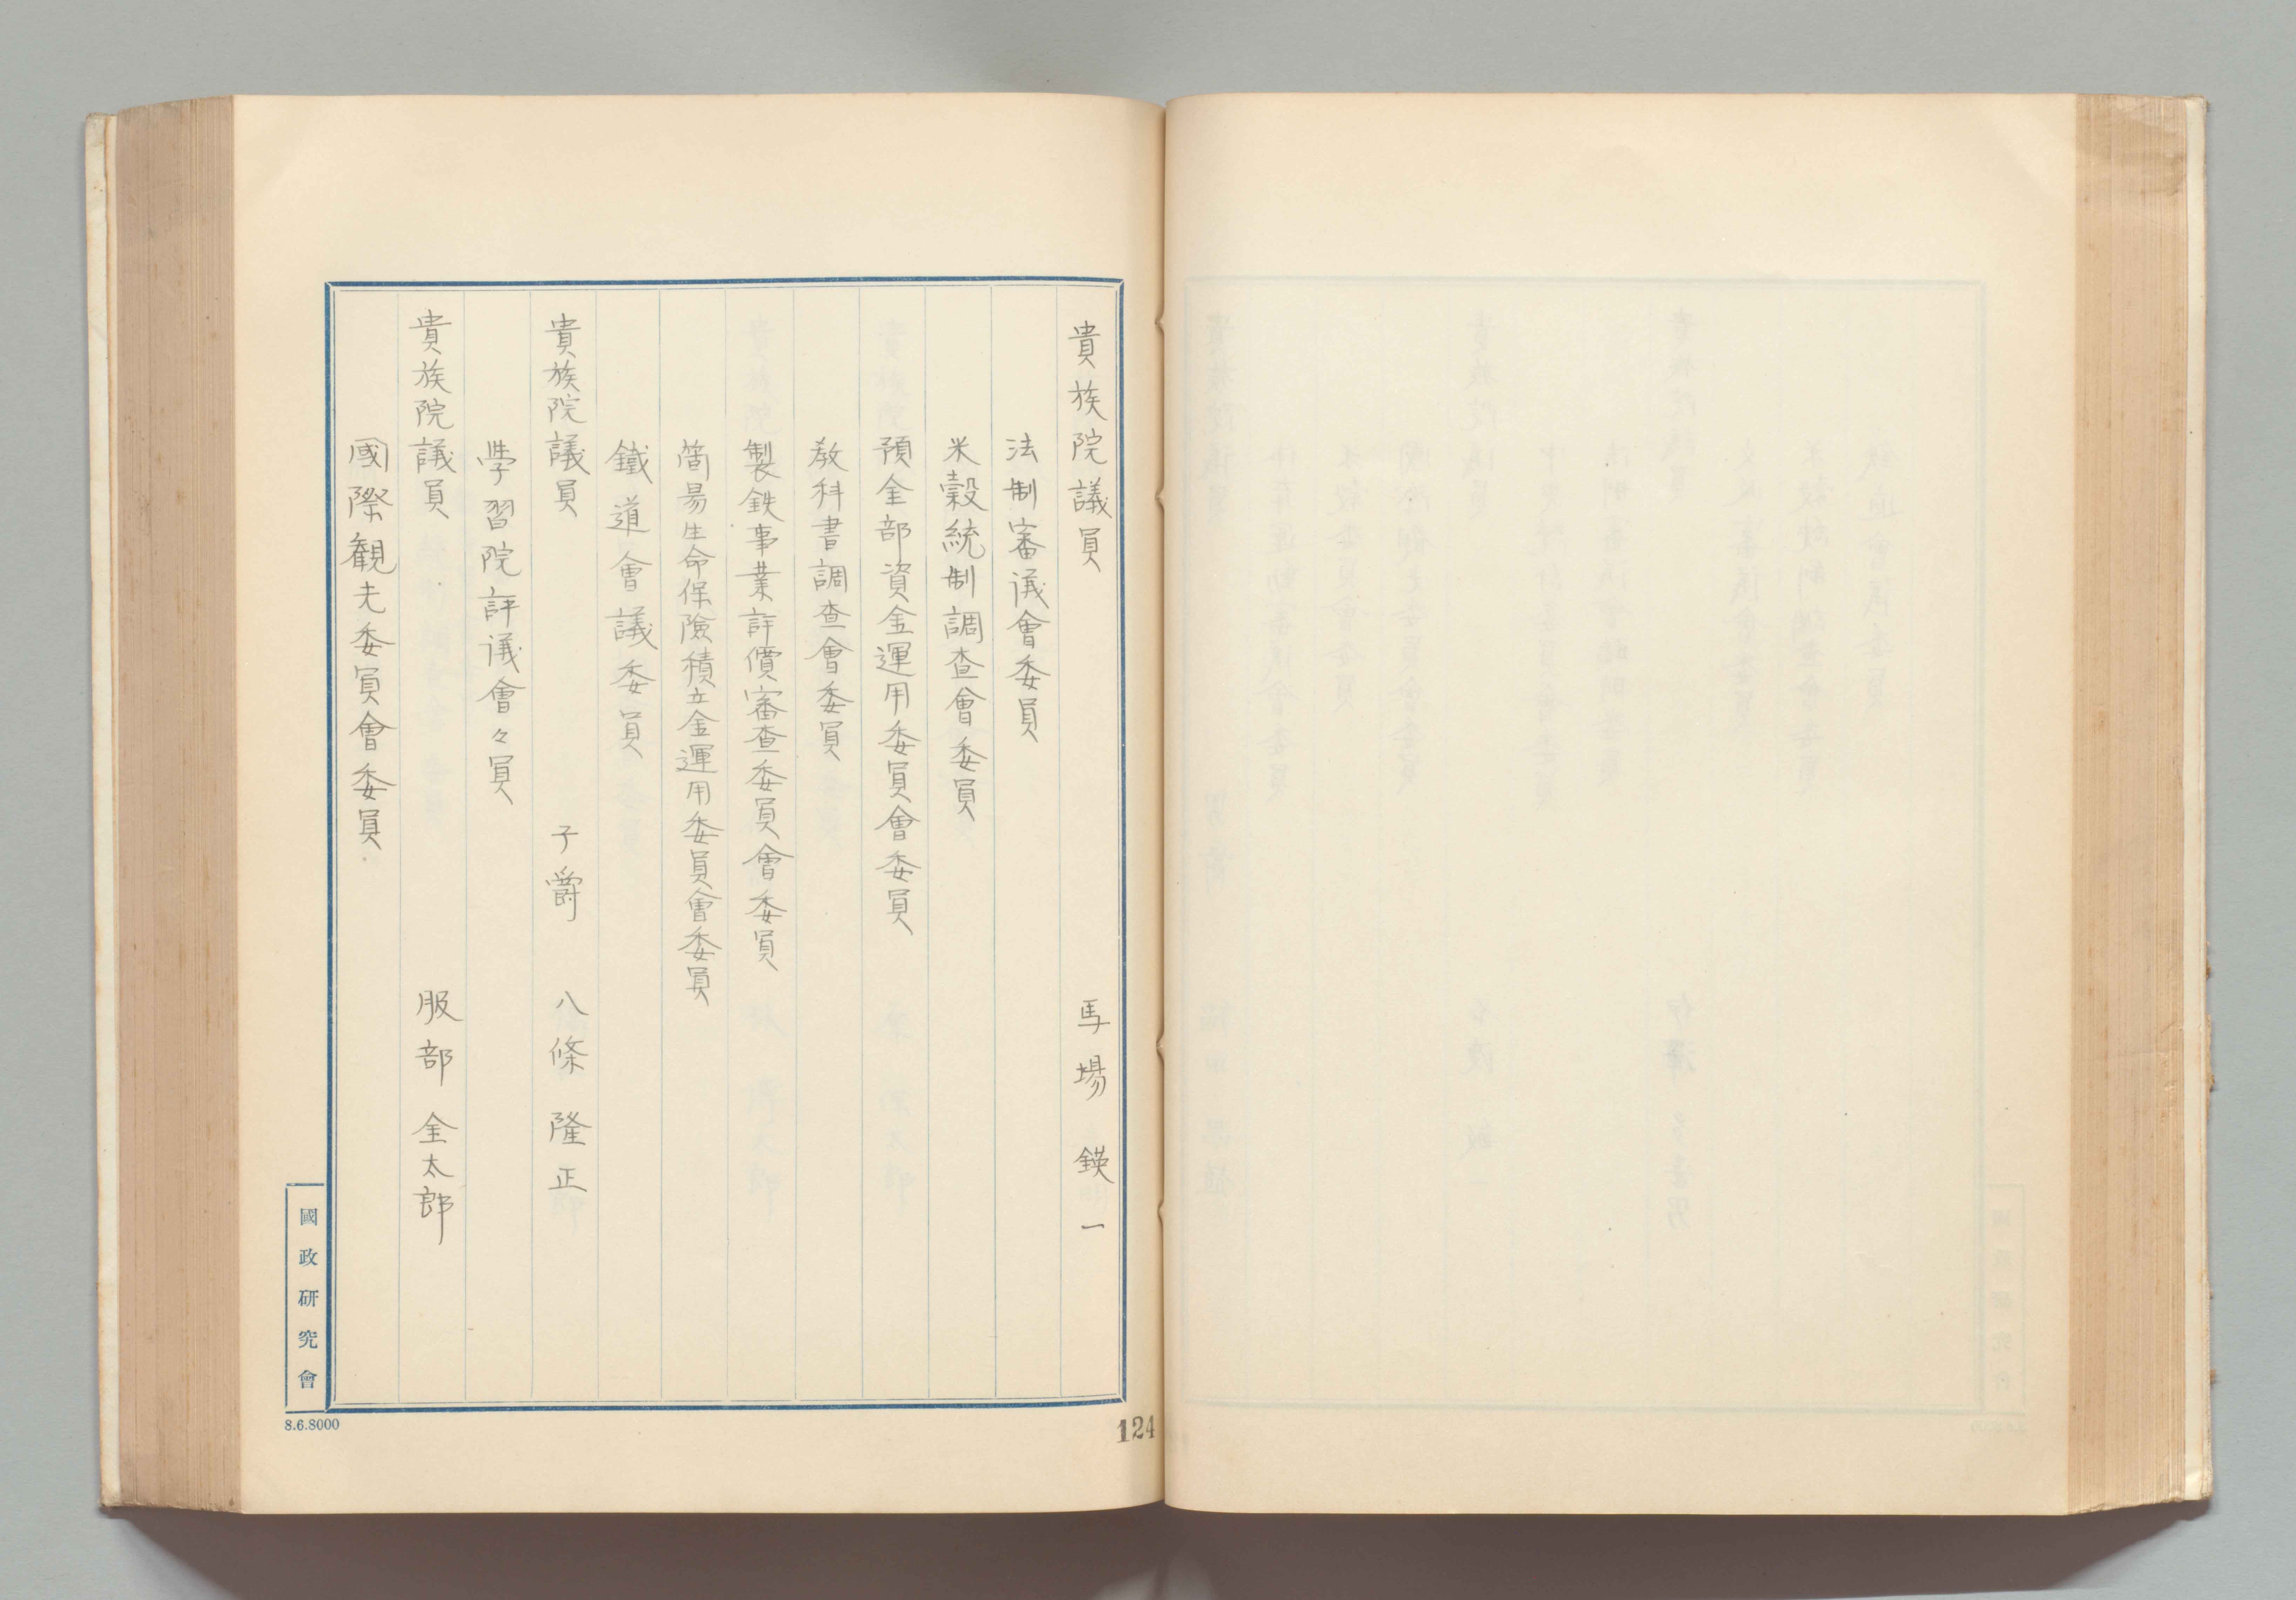 貴族院議員 馬場鍈一
法制審議會委員
米穀統制調査會委員
預金部資金運用委員會委員
教科書調査會委員
製鉄事業評價審査委員會委員
簡易生命保險積立金運用委員會委員
鐵道會議委員
貴族院議員 子爵 八條隆正
学習院評議會々員
貴族院議員 服部金太郎
國際観光委員會委員
國政研究會
8.6.8000
124